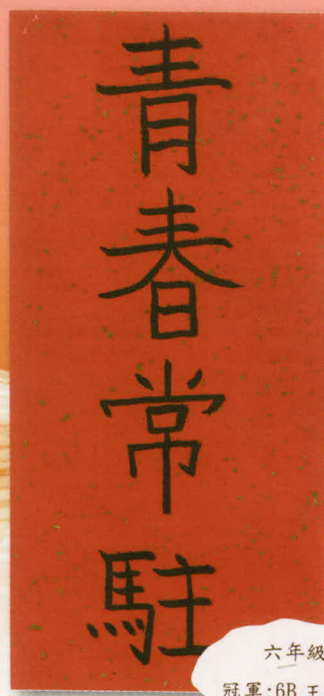 青春常駐
六年級
冠軍:6B 王